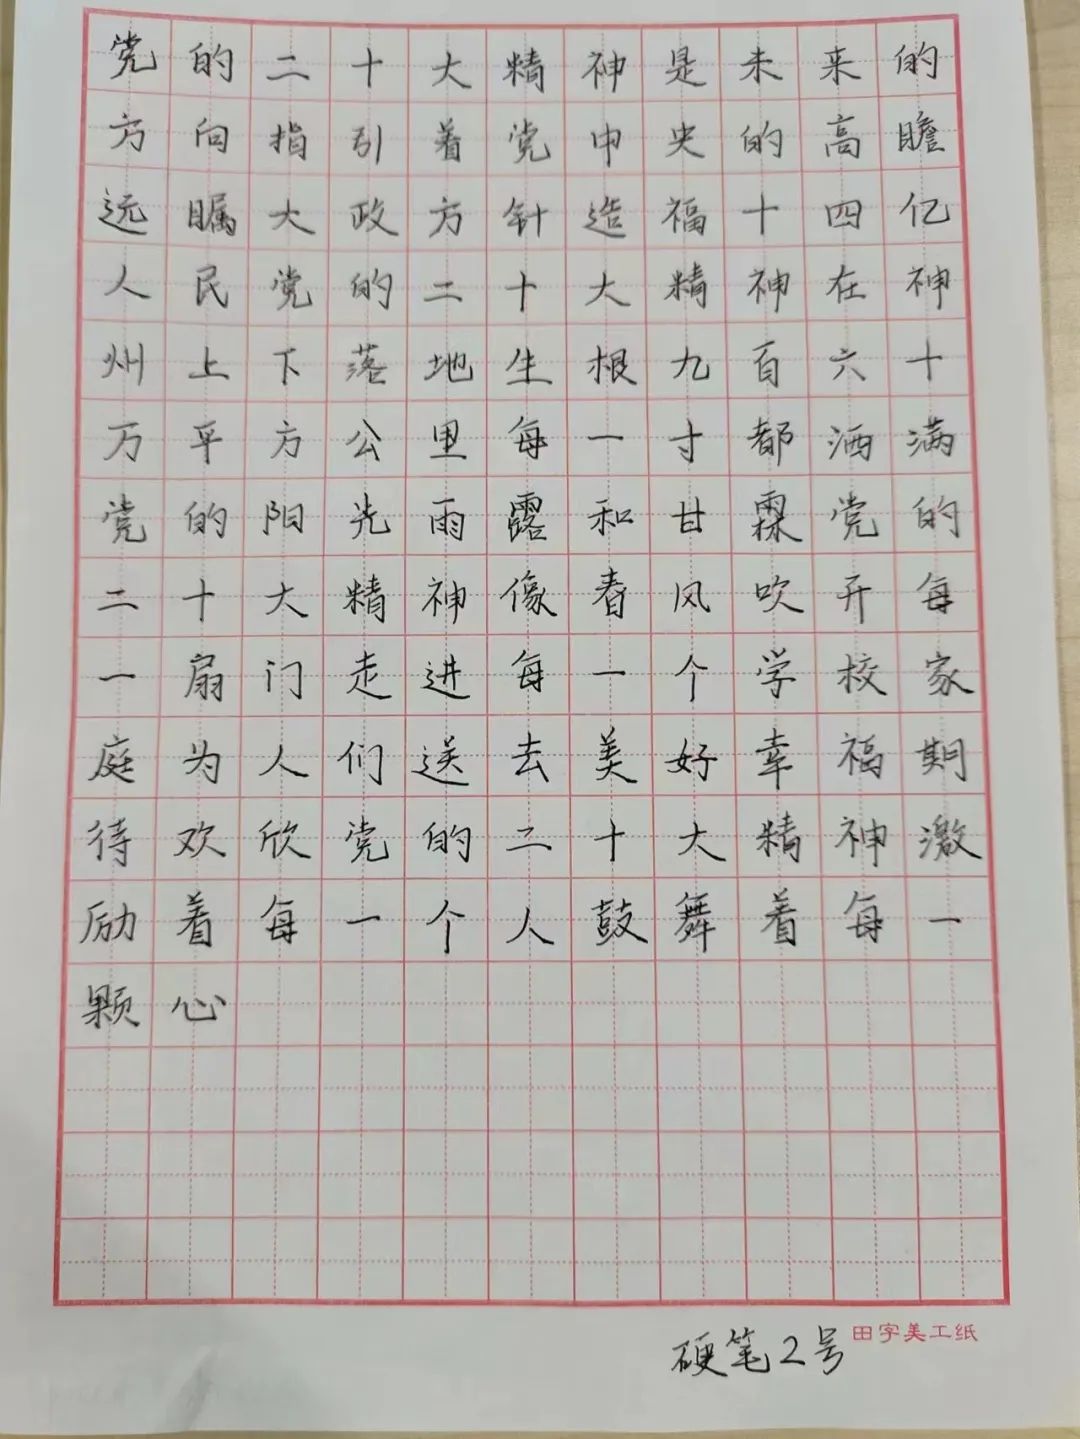 党的二十大精神是未来的
方向指引着党中央的高瞻
远瞩大政方针造福十四亿
人民党的二十大精神在神
州上下落地生根九百六十
万平方公里每一寸都洒满
党的阳光雨露和甘霖党的
二十大精神像春风吹开每
一扇门走进每一个学校家
庭为人们送去美好幸福期
待欢欣党的二十大精神激
励着每一个人鼓舞着每一
颗心
田字美工纸
硬笔2号